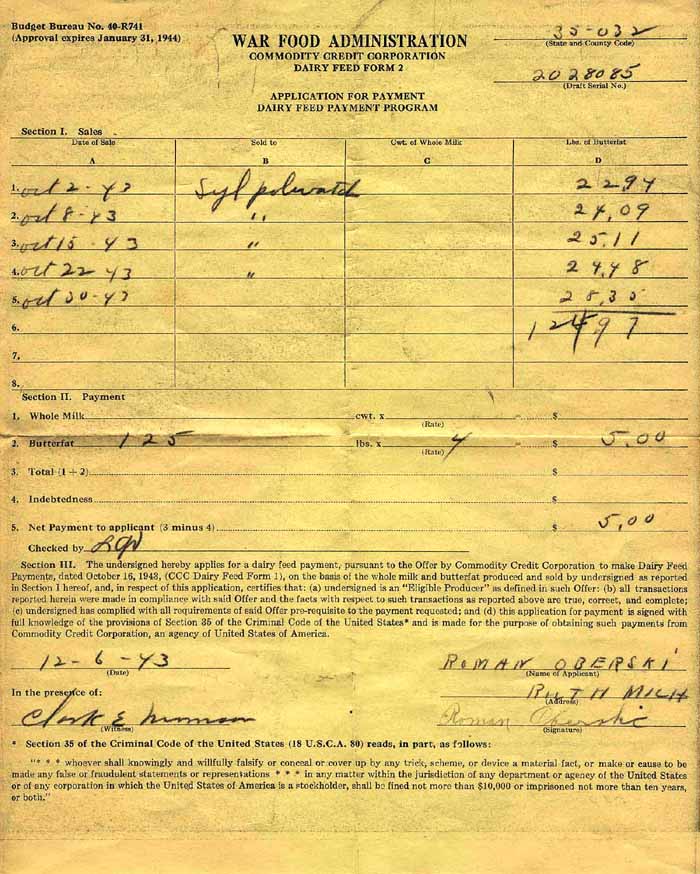 Budget Bureau No. 40-R741
(Approval expires January 31, 1944)
WAR FOOD ADMINISTRATION
COMMODITY CREDIT CORPORATION
DAIRY FEED FORM 2
35-032
(State and County Code)
2028085
(Draft Serial No.)
APPLICATION FOR PAYMENT
DAIRY FEED PAYMENT PROGRAM
Section I. Sales
Date of Sale Sold to Cwt. of Whole Milk Lbs. of Butterfat
A B C D
1. Oct 2-43 Syl 22 94
2. Oct 8-43 " 24,09
3. Oct 15-43 " 25,11
4. Oct 22-43 " 24,48
5. Oct 30-43 28,35
6. 124 97
7.
8.
Section II. Payment
1. Whole Milk cwt. x (Rate) = $
2. Butterfat 125 lbs. x 4 (Rate) = $ 5.00
3. Total (1 + 2) $
4. Indebtedness $
5. Net Payment to applicant (3 minus 4) $ 5,00
Checked by
Section III. The undersigned hereby applies for a dairy feed payment, pursuant to the Offer by Commodity Credit Corporation to make Dairy Feed
Payments, dated October 16, 1943, (CCC Dairy Feed Form 1), on the basis of the whole milk and butterfat produced and sold by undersigned as reported
in Section I hereof, and, in respect of this application, certifies that: (a) undersigned is an "Eligible Producer" as defined in such Offer: (b) all transactions
reported herein were made in compliance with said Offer and the facts with respect to such transactions as reported above are true, correct, and complete;
(c) undersigned has complied with all requirements of said Offer pre-requisite to the payment requested; and (d) this application for payment is signed with
full knowledge of the provisions of Section 35 of the Criminal Code of the United States* and is made for the purpose of obtaining such payments from
Commodity Credit Corporation, an agency of United States of America.
12-6-43 ROMAN OBERSKI
(Date) (Name of Applicant)
In the presence of: RUTH MICH
(Address)
Clark E Roman Oberski
(Witness) (Signature)
* Section 35 of the Criminal Code of the United States (18 U.S.C.A. 80) reads, in part, as follows:
"* * * whoever shall knowingly and willfully falsify or conceal or cover up by any trick, scheme, or device a material fact, or make or cause to be
made any false or fraudulent statements or representations * * * in any matter within the jurisdiction of any department or agency of the United States
or of any corporation in which the United States of America is a stockholder, shall be fined not more than $10,000 or imprisoned not more than ten years,
or both."